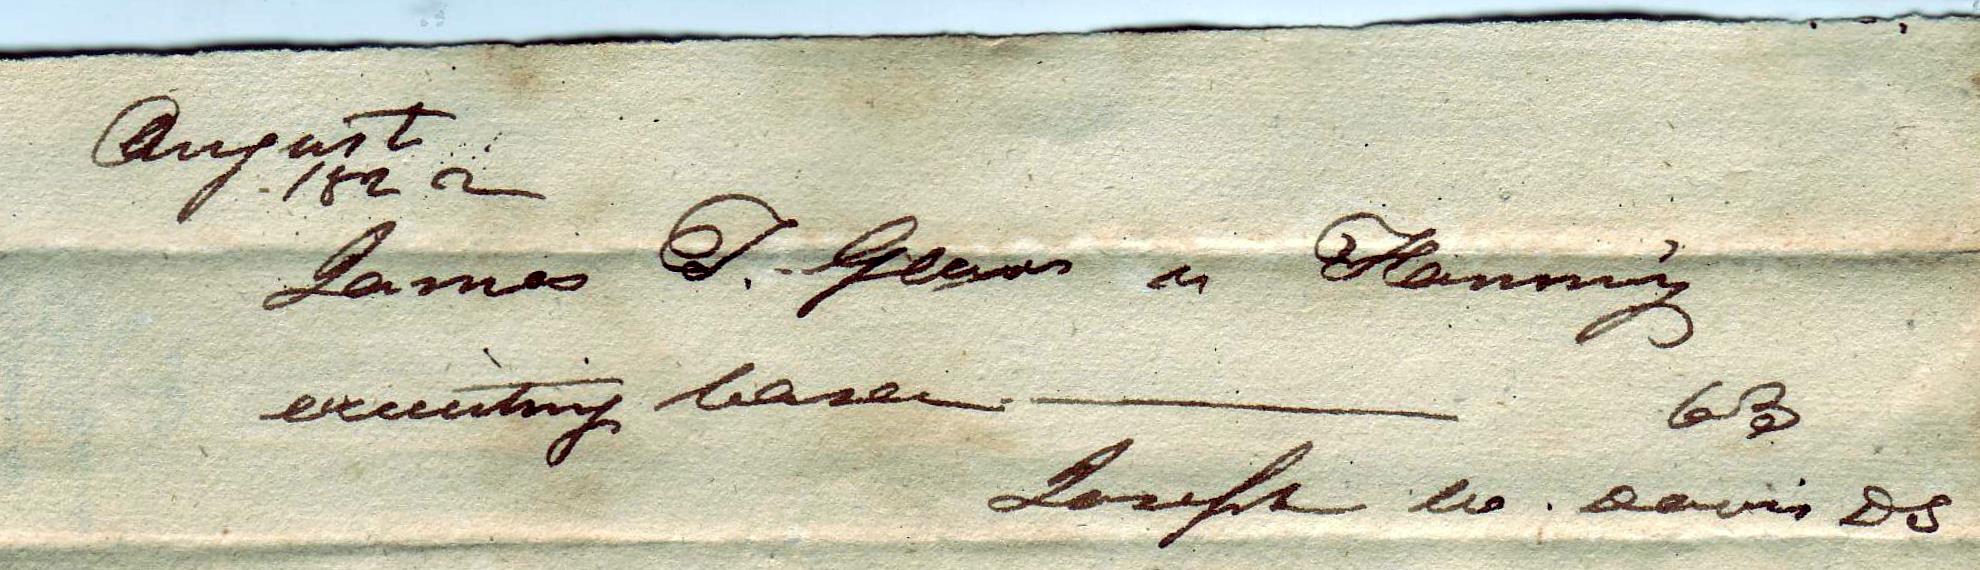 August
1822
James T. Gleaves vs Fanning
executing casa 63
Joseph W. Davis DS